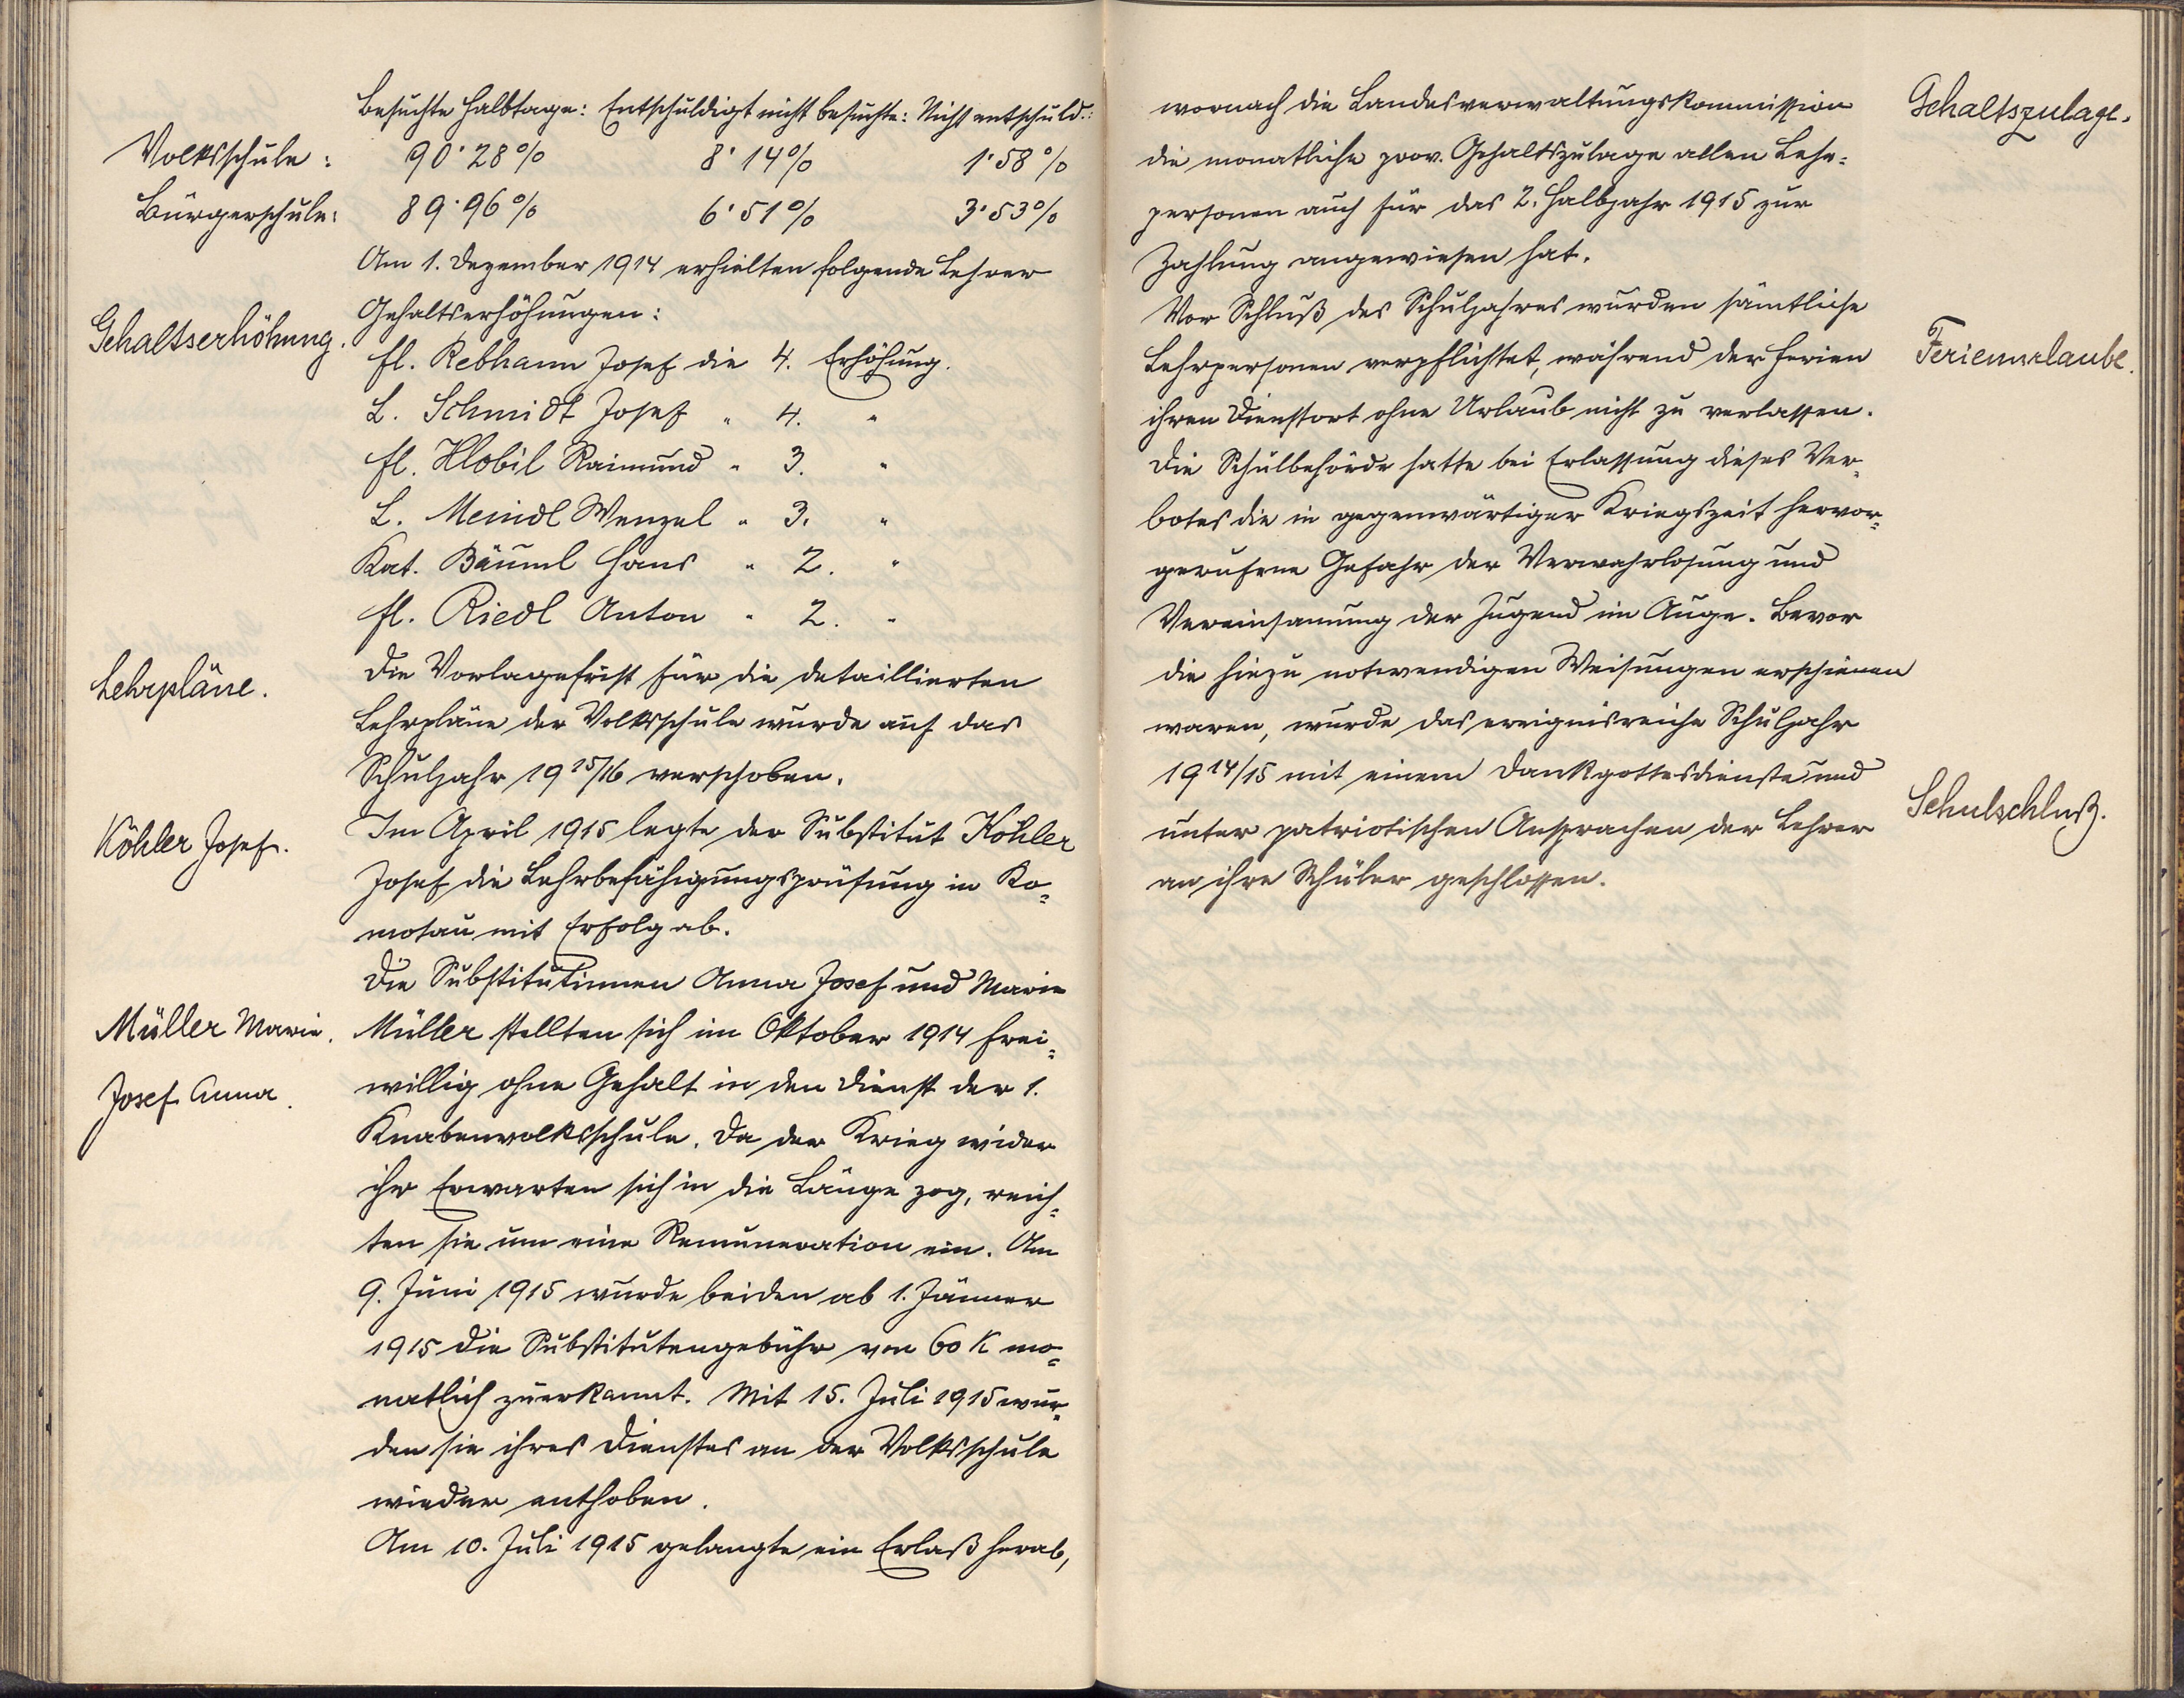 Besuchte Halbtage: Entschuldigt nicht besuchte: Nicht entschuld.:
Volksschule: 90·28% 8·14% 1·58%
Bürgerschule: 89·96% 6·51% 3·53%
Am 1. Dezember 1914 erhielten folgende Lehrer
Gehaltserhöhung.
Gehaltserhöhungen:
fl. Rebhann Josef die 4. Erhöhung.
L. Schmidt Josef " 4. "
fl. Hlobil Raimund " 3. "
L. Meindl Wenzel " 3. "
Kat. Bäuml Hans " 2. "
fl. Riedl Anton " 2. "
Lehrpläne.
Die Vorlagefrist für die detaillierten
Lehrpläne der Volksschule wurde auf das
Schuljahr 1915/16 verschoben.
Köhler Josef.
Im April 1915 legte der Substitut Köhler
Josef die Lehrbefähigungsprüfung in Ko=
motau mit Erfolg ab.
Die Substitutinnen Anna Josef und Marie
Müller Marie.
Müller stellten sich im Oktober 1914 frei=
Josef Anna.
willig ohne Gehalt in den Dienst der 1.
Knabenvolksschule. Da der Krieg wider
ihr Erwarten sich in die Länge zog, reich=
ten sie um eine Remuneration ein. Am
9. Juni 1915 wurde beiden ab 1. Jänner
1915 die Substitutengebühr von 60 K mo=
natlich zuerkannt. Mit 15. Juli 1915 wur=
den sie ihres Dienstes an der Volksschule
wieder enthoben.
Am 10. Juli 1915 gelangte ein Erlaß herab,
wornach die Landesverwaltungskommission
Gehaltszulage.
die monatliche prov. Gehaltszulage allen Lehr=
personen auch für das 2. Halbjahr 1915 zur
Zahlung angewiesen hat.
Vor Schluß des Schuljahres wurden sämtliche
Lehrpersonen verpflichtet, während der Ferien
Ferienurlaube.
ihren Dienstort ohne Urlaub nicht zu verlassen.
Die Schulbehörde hatte bei Erlassung dieses Ver=
botes die in gegenwärtiger Kriegszeit hervor=
gerufene Gefahr der Verwahrlosung und
Vereinsamung der Jugend im Auge. Bevor
die hiezu notwendigen Weisungen erschienen
waren, wurde das ereignisreiche Schuljahr
1914/15 mit einem Dankgottesdienste und
Schulschluß.
unter patriotischen Ansprachen der Lehrer
an ihre Schüler geschlossen.